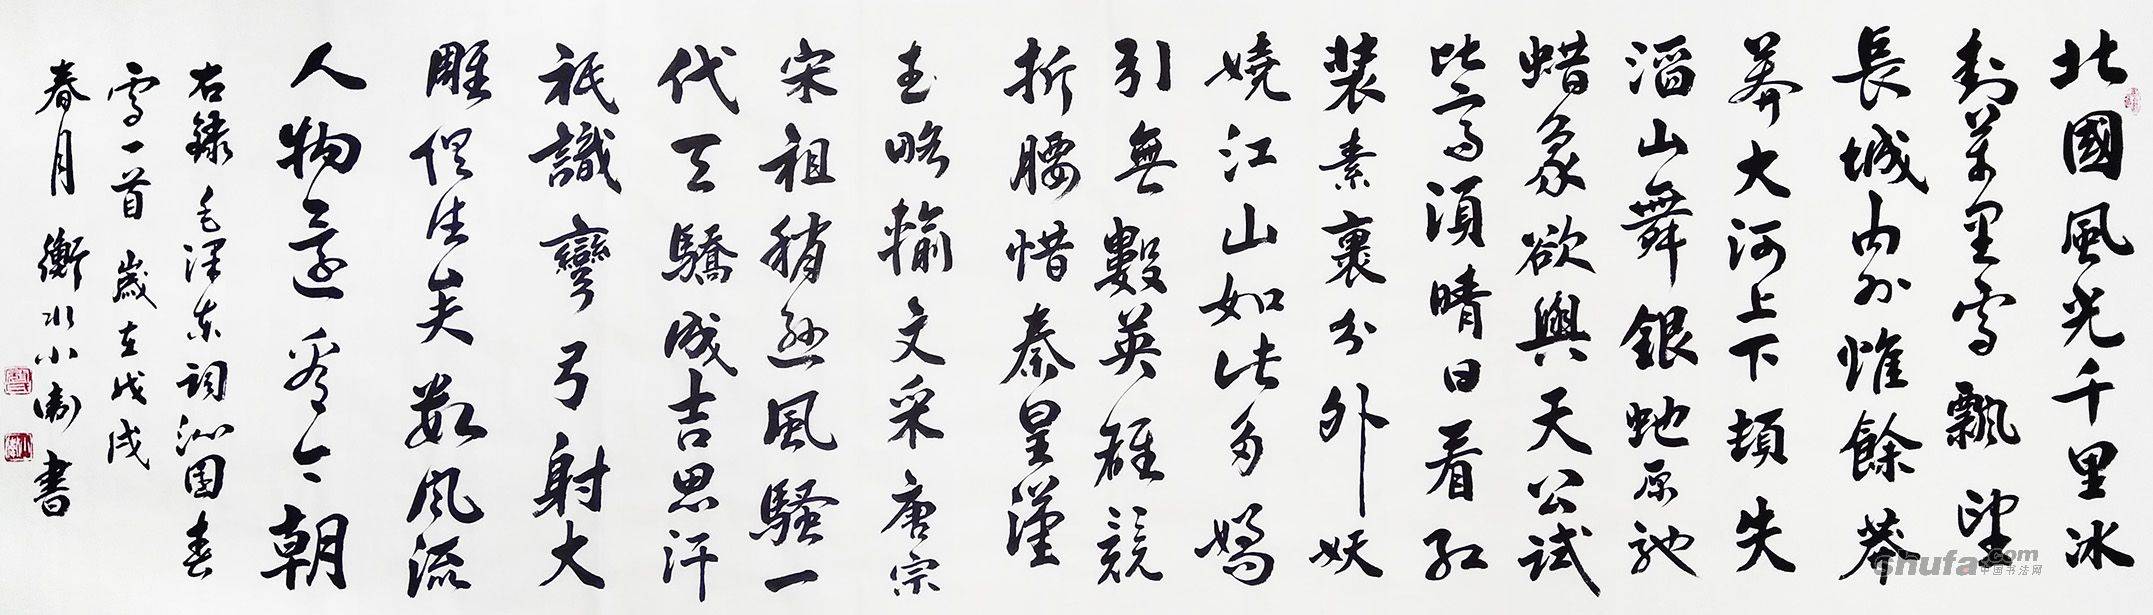 北國風光千里冰
封萬里雪飄望
長城內外惟餘莽
莽大河上下頓失
滔山舞銀蛇原馳
蜡象欲與天公試
比高須晴日看紅
裝素裹分外妖
嬈江山如此多嬌
引無數英雄競
折腰惜秦皇漢
武略輸文采唐宗
宋祖稍遜風騷一
代天驕成吉思汗
祇識彎弓射大
雕俱往矣數風流
人物還看今朝
右錄毛澤東詞沁園春
雪一首歲在戊戌
春月衡水小衛書
shufa.com
中国书法网